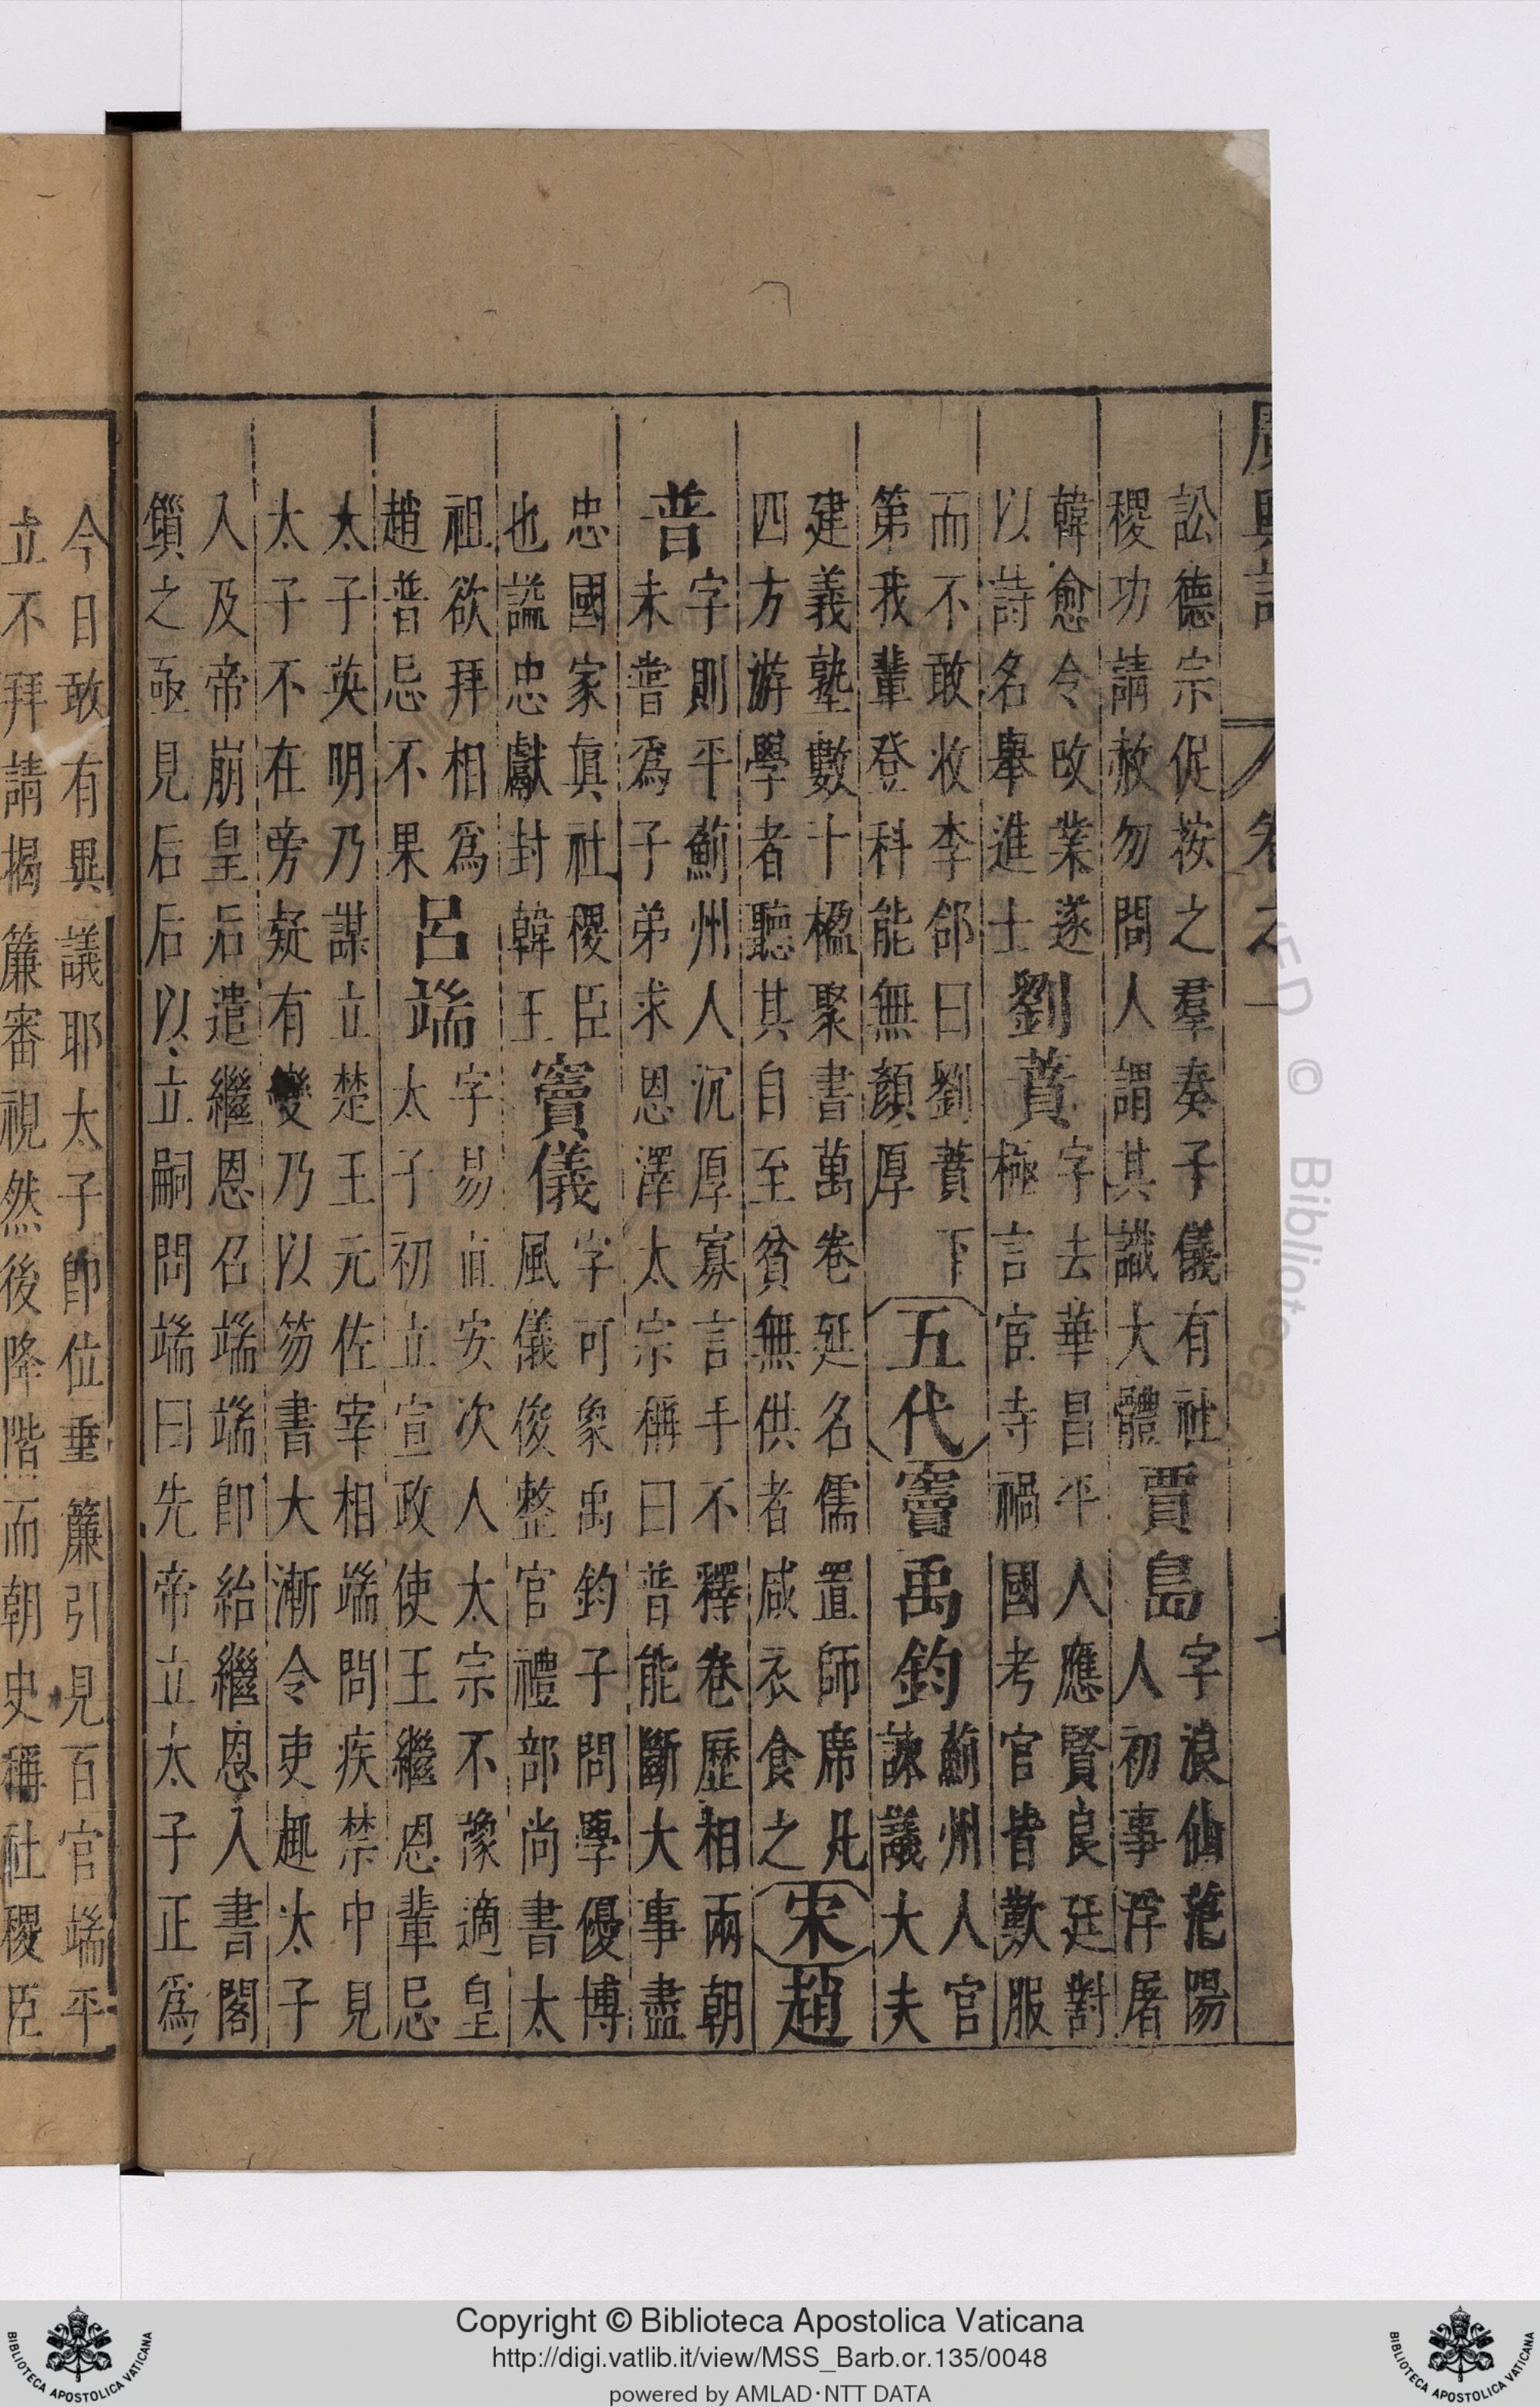 廣輿記 卷之一
訟德宗促按之羣奏子儀有社
稷功請赦勿問人謂其識大體
賈島
字浪仙范陽
人初事浮屠
韓愈令改業遂
以詩名舉進士
劉蕡
字去華昌平人應賢良廷對
極言宦寺禍國考官皆歎服
而不敢收李郃曰劉蕡下
第我輩登科能無顏厚
五代
竇禹鈞
薊州人官
諫議大夫
建義塾數十楹聚書萬卷延名儒置師席凡
四方游學者聽其自至貧無供者咸衣食之
宋
趙
普
字則平薊州人沉厚寡言手不釋卷歷相兩朝
未嘗爲子弟求恩澤太宗稱曰普能斷大事盡
忠國家眞社稷臣
也謚忠獻封韓王
竇儀
字可象禹鈞子問學優博
風儀俊整官禮部尚書太
祖欲拜相爲
趙普忌不果
呂端
字易直安次人太宗不豫適皇
太子初立宣政使王繼恩輩忌
太子英明乃謀立楚王元佐宰相端問疾禁中見
太子不在旁疑有變乃以笏書大漸令吏趣太子
入及帝崩皇后遣繼恩召端端即紿繼恩入書閣
鎖之亟見后后以立嗣問端曰先帝立太子正爲
今日敢有異議耶太子即位垂簾引見百官端平
立不拜請揭簾審視然後降階而朝史稱社稷臣
Copyright © Biblioteca Apostolica Vaticana
http://digi.vatlib.it/view/MSS_Barb.or.135/0048
powered by AMLAD·NTT DATA
BIBLIOTECA APOSTOLICA VATICANA
BIBLIOTECA APOSTOLICA VATICANA